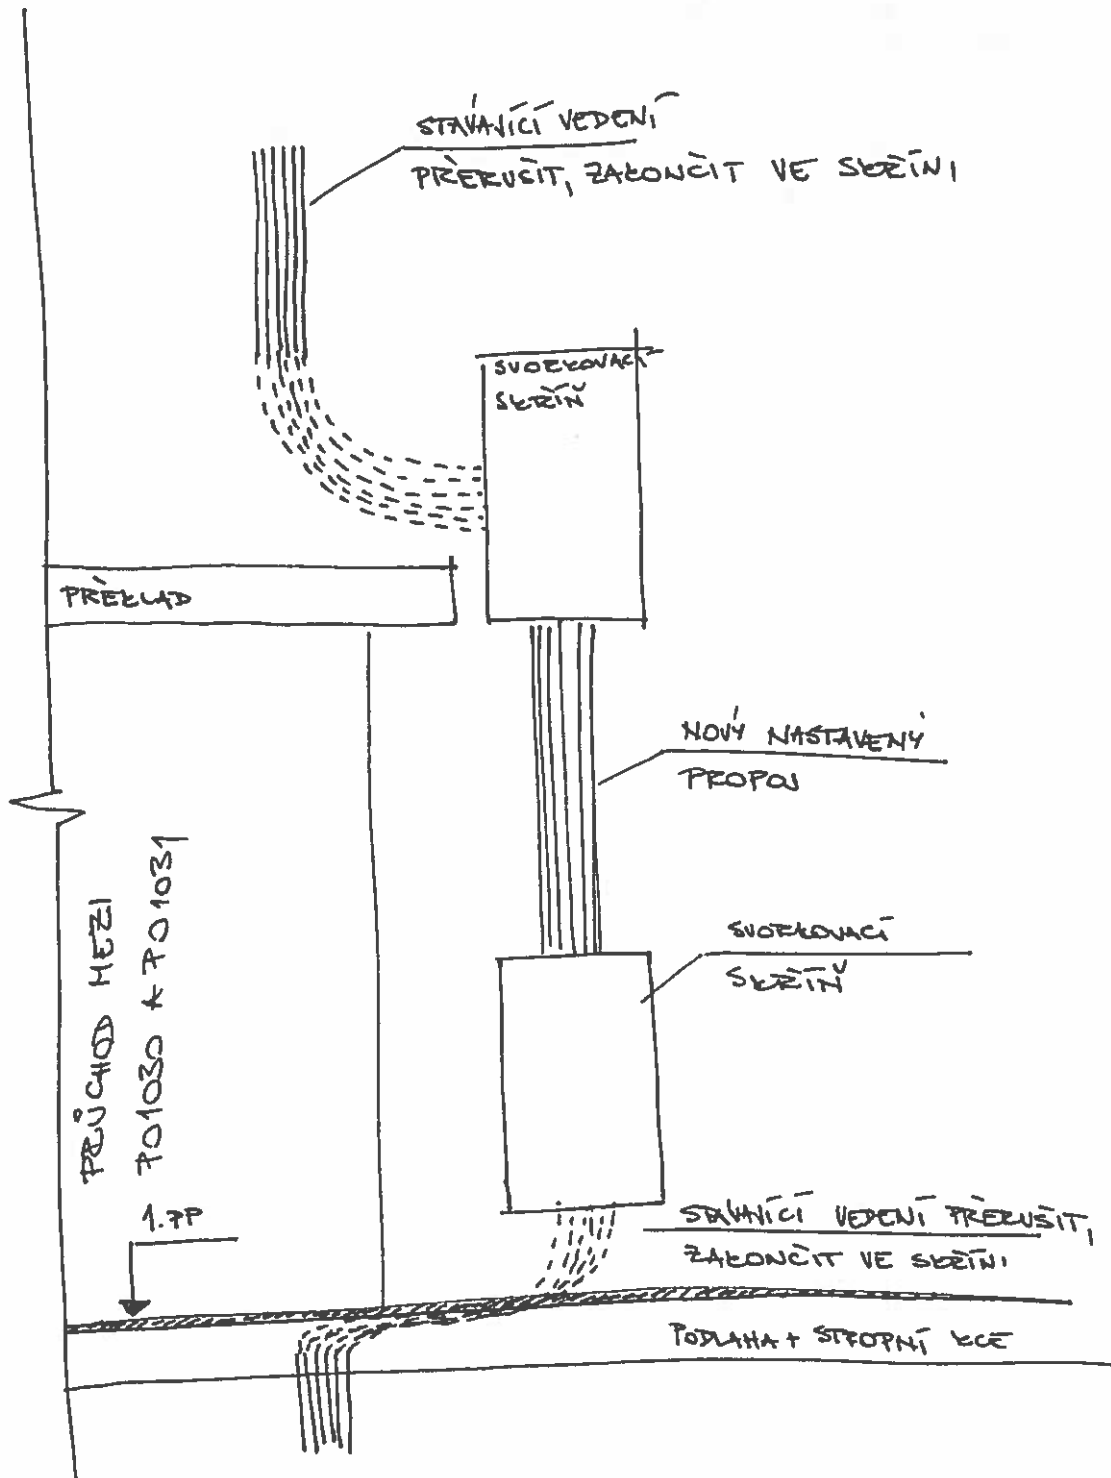 STÁVAJÍCÍ VEDENÍ
PŘERUŠIT, ZAKONČIT VE SKŘÍNI
SVORKOVACÍ
SKŘÍŇ
PŘEKLAD
NOVÝ NASTAVENÝ
PROPOJ
PRŮCHOD MEZI
P01030 A P01031
SVORKOVACÍ
SKŘÍŇ
1.PP
STÁVAJÍCÍ VEDENÍ PŘERUŠIT,
ZAKONČIT VE SKŘÍNI
PODLAHA + STROPNÍ KCE